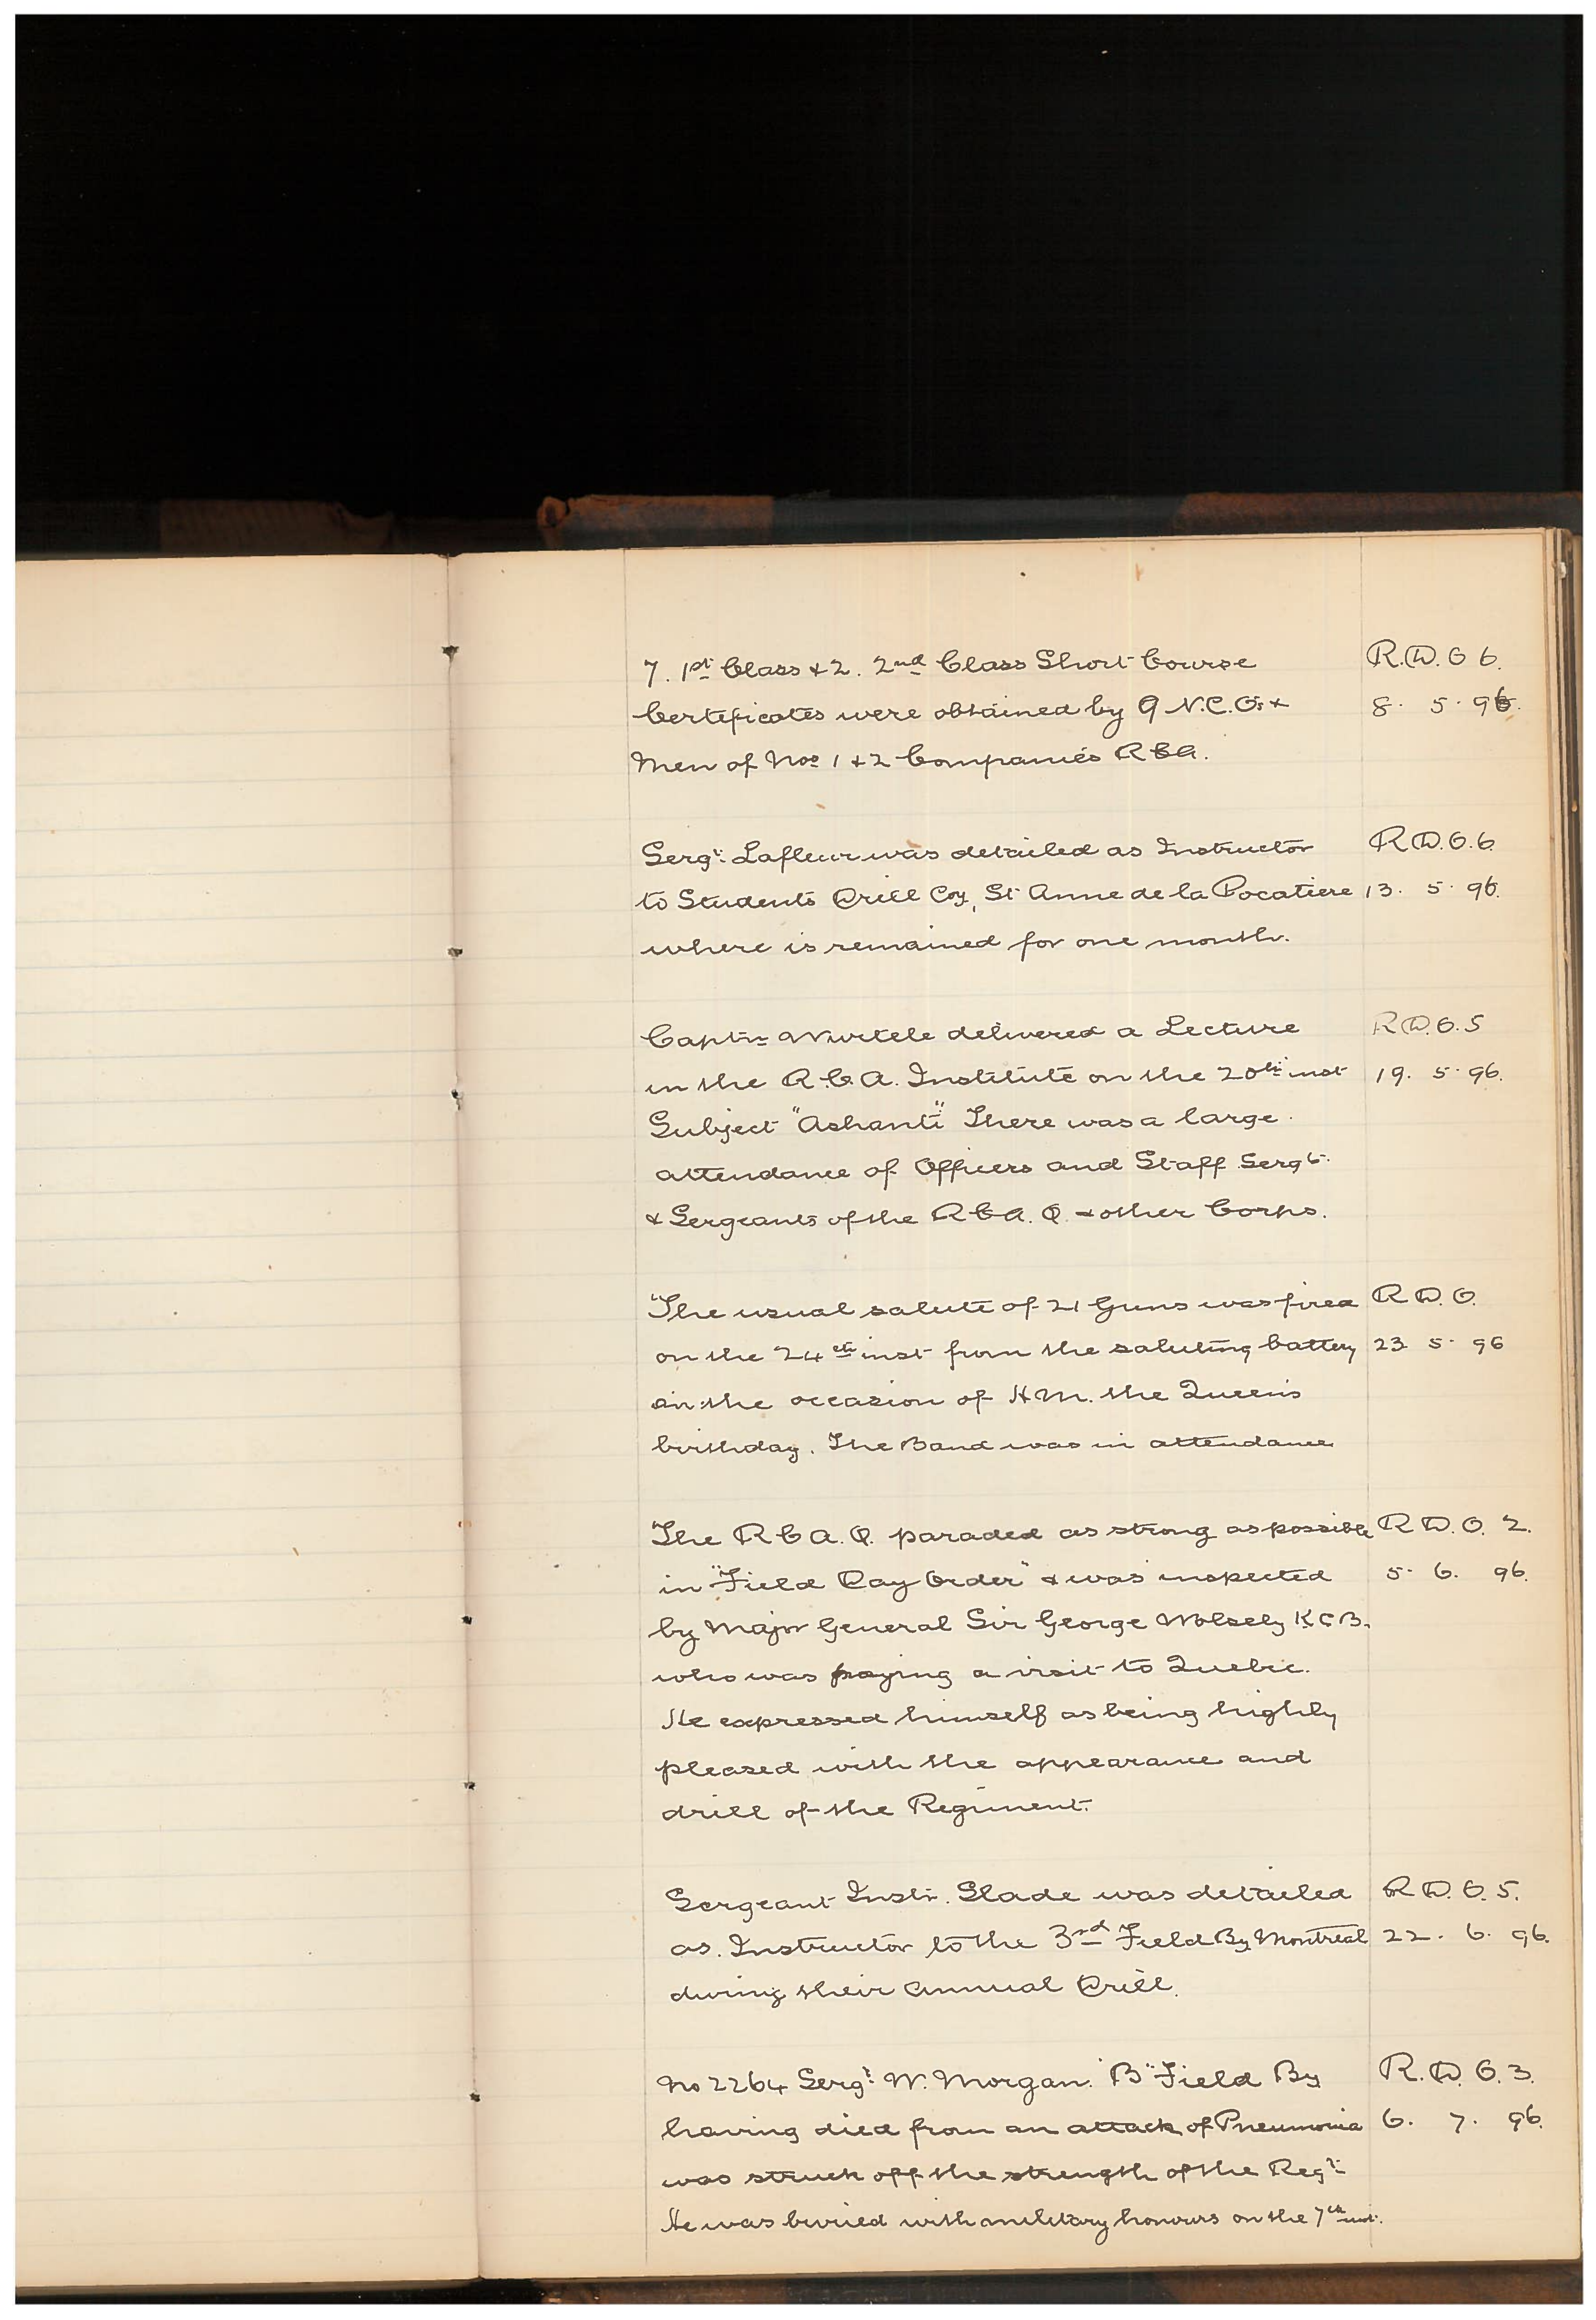 7. 1st Class & 2. 2nd Class Short Course R.D.O 6.
Certificates were obtained by 9 N.C.O's & 8. 5. 96.
Men of Nos 1 & 2 Companies R C A.
Sergt. Lafleur was detailed as Instructor R.D.O.6
to Students Drill Coy, St Anne de la Pocatiere 13. 5. 96.
where is remained for one month.
Captn Wurtele delivered a Lecture R.D.O.5
in the R.C.A. Institute on the 20th inst 19. 5. 96.
Subject "Ashanti" There was a large
attendance of Officers and Staff Sergts.
& Sergeants of the R C A. Q. & other Corps.
The usual salute of 21 Guns was fired R.D.O.
on the 24th inst from the saluting battery 23 5. 96
on the occasion of H M. the Queen's
birthday. The Band was in attendance
The R C A. Q. paraded as strong as possible R D. O. 2.
in "Field Day Order" & was inspected 5. 6. 96.
by Major General Sir George Wolsely K C B.
who was paying a visit to Quebec.
He expressed himself as being highly
pleased with the appearance and
drill of the Regiment.
Sergeant Instr. Slade was detailed R.D.O.5.
as Instructor to the 3rd Field By Montreal 22. 6. 96.
during their Annual Drill.
No 2264 Sergt W. Morgan. "B" Field By R.D.O.3.
having died from an attack of Pneumonia 6. 7. 96.
was struck off the strength of the Regt.
He was buried with military honours on the 7th inst.